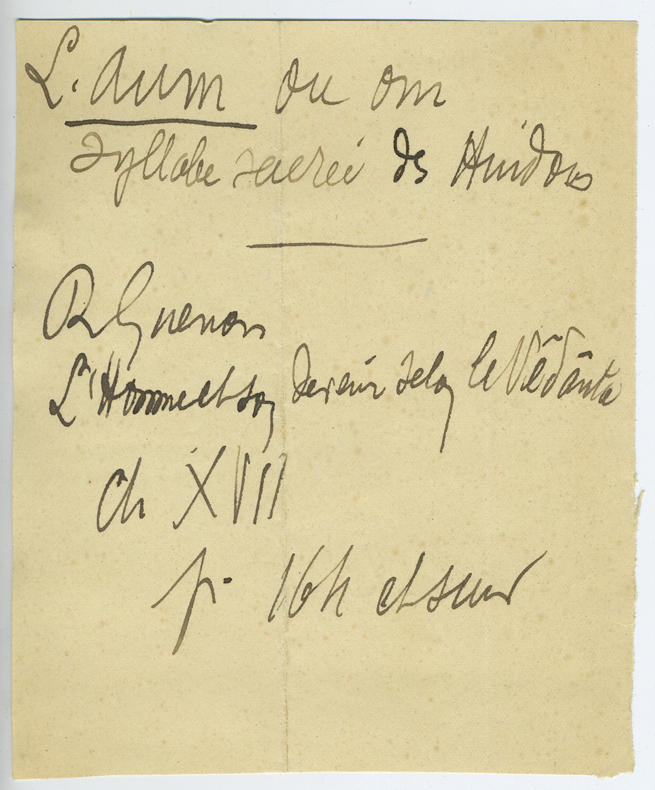 L. aum ou om
syllabe sacrée ds Hindous
R Guenon
L'Homme et son devenir selon le Vêdânta
ch XVII
p. 164 et suiv